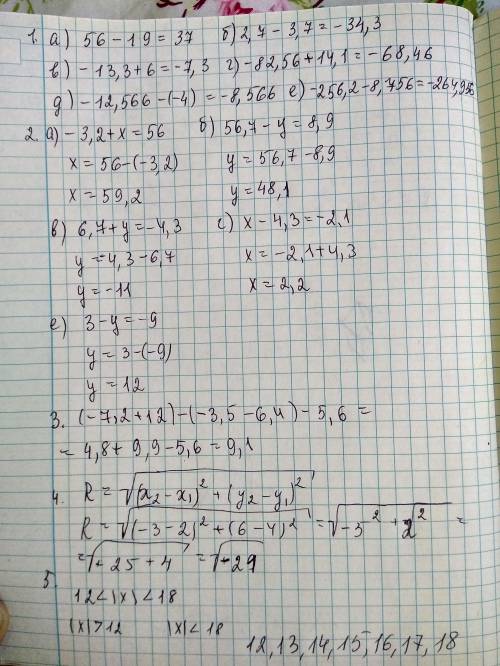 1. а) 56 - 19 = 37 б) 2,7 - 3,7 = -34,3
в) -13,3 + 6 = -7,3 г) -82,56 + 14,1 = -68,46
д) -12,566 - (-4) = -8,566 е) -256,2 - 8,756 = -264,956
2. а) -3,2 + x = 56 б) 56,7 - y = 8,9
x = 56 - (-3,2) y = 56,7 - 8,9
x = 59,2 y = 48,1
в) 6,7 + y = -4,3 с) x - 4,3 = -2,1
y = -4,3 - 6,7 x = -2,1 + 4,3
y = -11 x = 2,2
е) 3 - y = -9
y = 3 - (-9)
y = 12
3. (-7,2 + 12) - (-3,5 - 6,4) - 5,6 =
= 4,8 + 9,9 - 5,6 = 9,1
4. R = √(x₂ - x₁)² + (y₂ - y₁)²
R = √(-3 - 2)² + (6 - 4)² = √-3² + 2² =
= √-25 + 4 = √-29
5.
12 < |x| < 18
|x| > 12 |x| < 18
12, 13, 14, 15, 16, 17, 18